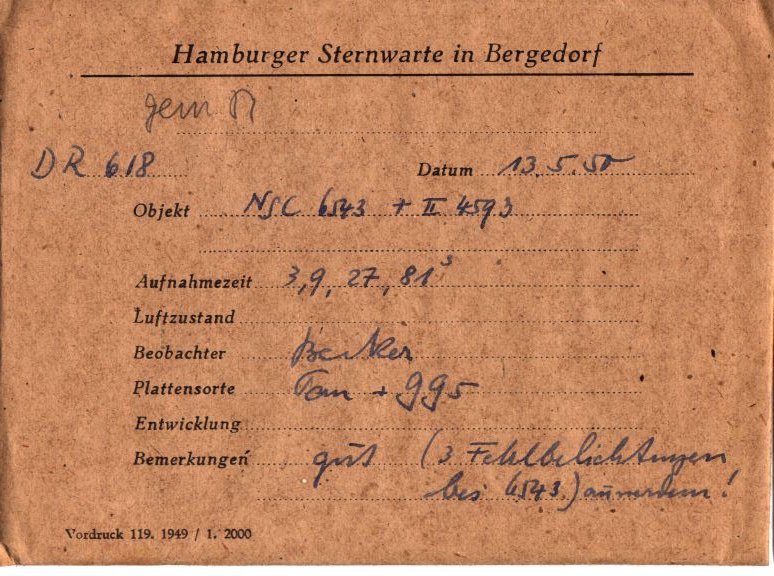 Hamburger Sternwarte in Bergedorf
gem
DR 618 Datum 13.5.50
Objekt NGC 6543 + II 4593
Aufnahmezeit 3, 9, 27, 81 s
Luftzustand
Beobachter Becker
Plattensorte + GG5
Entwicklung
Bemerkungen gut (3 Fehlbelichtungen
bei 6543) !
Vordruck 119. 1949 / 1. 2000